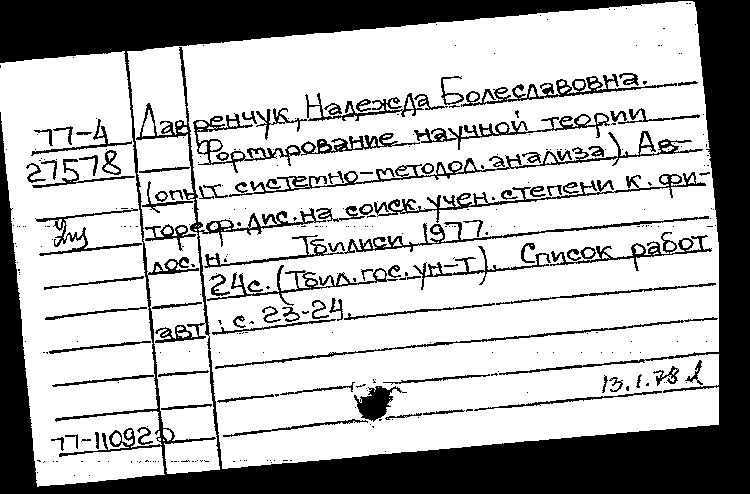 77-4
27578
2нз
Лавренчук, Надежда Болеславовна.
Формирование научной теории
(опыт системно-методол. анализа). Ав-
тореф. дис. на соиск. учен. степени к. фи-
лос. н. Тбилиси, 1977.
24с. (Тбил. гос. ун-т). Список работ
авт.: с. 23-24.
13.1.78
77-110920